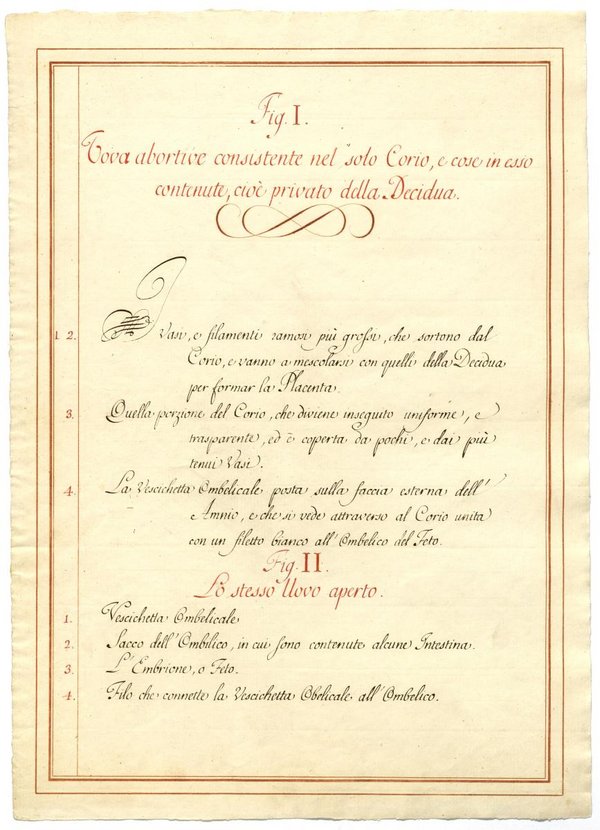 Fig. I.
Vova abortive consistente nel solo Corio, e cose in esso
contenute, cioè privato della Decidua.
1 2. I Vasi, e filamenti ramosi più grossi, che sortono dal
Corio, e vanno a mescolarsi con quelli della Decidua
per formar la Placenta.
3. Quella porzione del Corio, che diviene inseguito uniforme, e
trasparente, ed è coperta da pochi, e dai più
tenui Vasi.
4. La Vescichetta Ombelicale posta sulla faccia esterna dell'
Amnio, e che si vede attraverso al Corio unita
con un filetto bianco all'Ombelico del Feto.
Fig. II.
Lo stesso Uovo aperto.
1. Vescichetta Ombelicale
2. Sacco dell'Ombilico, in cui sono contenute alcune Intestina.
3. L'Embrione, o Feto.
4. Filo che connette la Vescichetta Obelicale all'Ombelico.